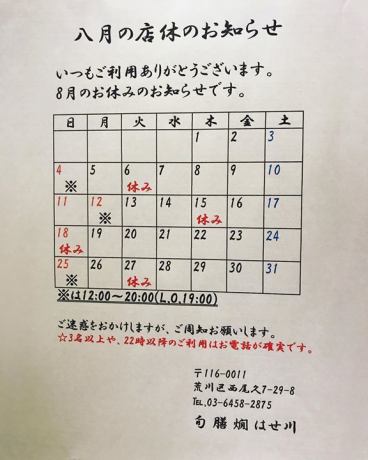 八月の店休のお知らせ
いつもご利用ありがとうございます。
8月のお休みのお知らせです。
日 月 火 水 木 金 土
1 2 3
4 5 6 7 8 9 10
※ 休み
11 12 13 14 15 16 17
※ 休み
18 19 20 21 22 23 24
休み
25 26 27 28 29 30 31
※ 休み
※は12:00~20:00(L.O.19:00)
ご迷惑をおかけしますが、ご周知お願いします。
☆3名以上や、22時以降のご利用はお電話が確実です。
〒116-0011
荒川区西尾久7-29-8
TEL.03-6458-2875
旬膳燗 はせ川